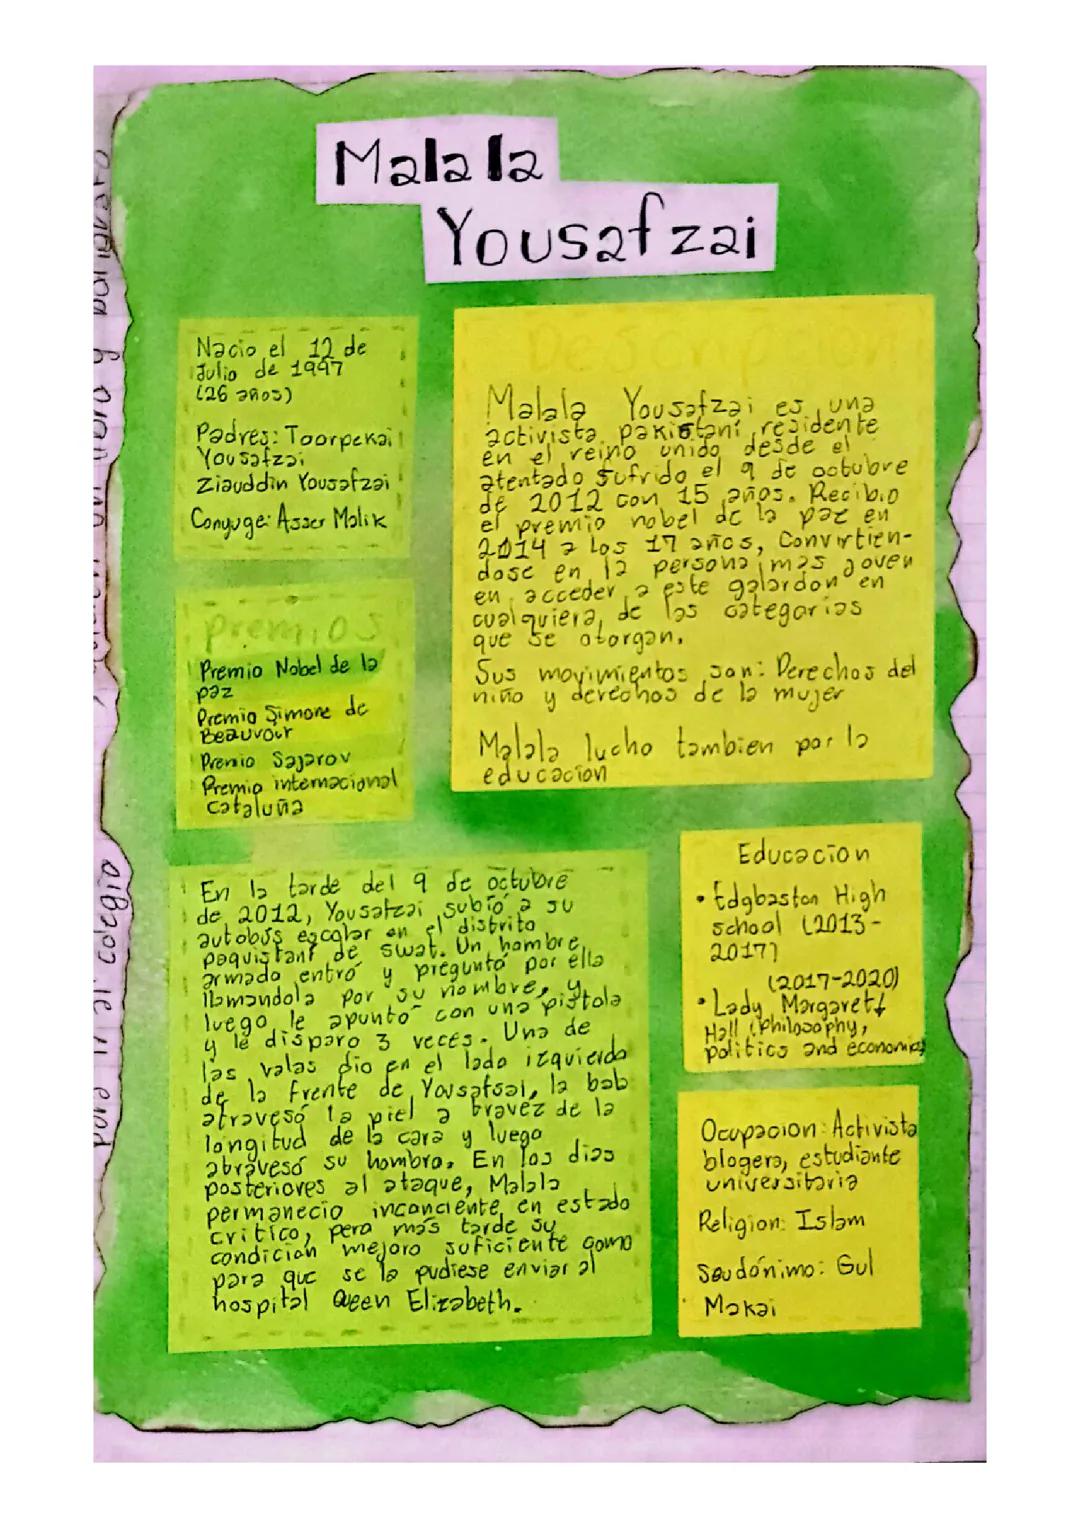 Malala
Yousafzai
Nacio el 12 de
Julio de 1997
(26 años)
Padres: Toorpekai
Yousafzai
Ziauddin Yousafzai
Conyuge: Asser Malik
Descripcion
Malala Yousafzai es una
activista pakistaní residente
en el reino unido desde el
atentado sufrido el 9 de octubre
de 2012 con 15 años. Recibio
el premio nobel de la paz en
2014 a los 17 años, Convirtien-
dose en la persona mas joven
en acceder a este galardon en
cualquiera de las categorias
que se otorgan.
Sus movimientos son: Derechos del
niño y derechos de la mujer
Malala lucho tambien por la
educacion
premios
Premio Nobel de la
paz
Premio Simone de
Beauvour
Premio Sajarov
Premio internacional
Cataluña
En la tarde del 9 de octubre
de 2012, Yousafzai subió a su
autobús escolar en el distrito
paquistaní de swat. Un hombre
armado entró y preguntó por ella
llamandola por su nombre, y
luego le apunto con una pistola
y le disparo 3 veces. Una de
las valas dio en el lado izquierdo
de la frente de Yousafsai, la bab
atravesó la piel a travez de la
longitud de la cara y luego
atravesó su hombro. En los dias
posteriores al ataque, Malala
permanecio inconciente en estado
critico, pero más tarde su
condicion mejoro suficiente como
para que se la pudiese enviar al
hospital Queen Elizabeth.
Educacion
• Edgbaston High
school (2013-
2017)
(2017-2020)
• Lady Margaret
Hall (Philosophy,
politics and economics
Ocupacion: Activista
blogera, estudiante
universitaria
Religion: Islam
Seudónimo: Gul
Makai
para ir al colegio